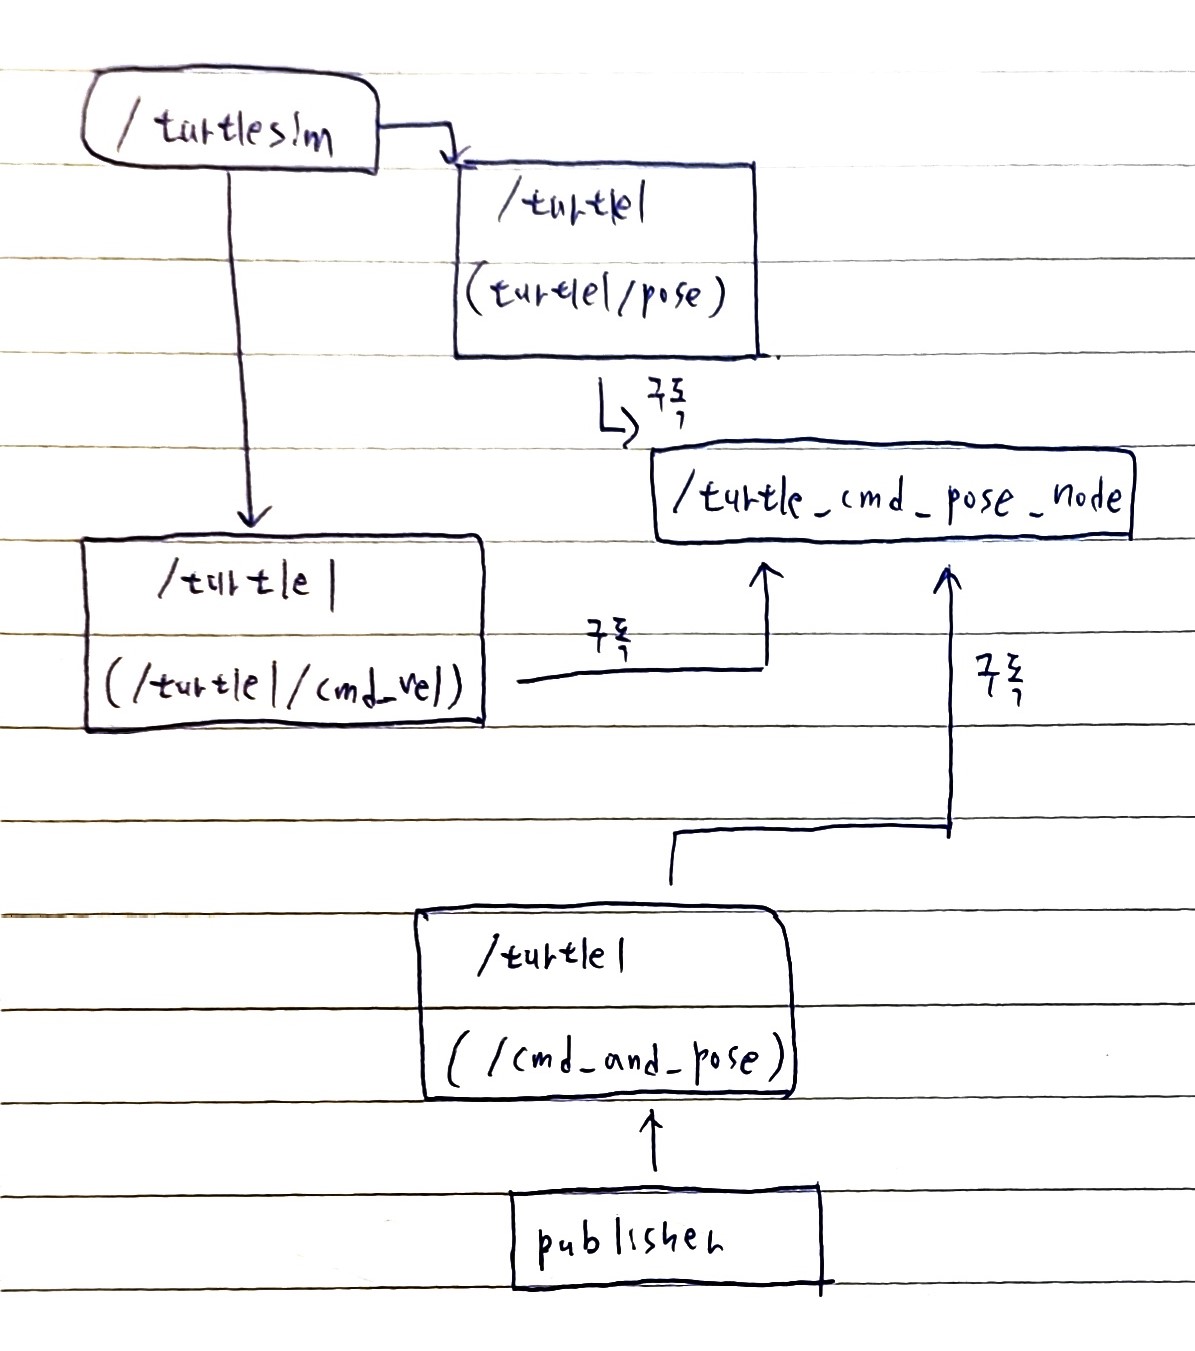 /turtlesim
/turtle1
(turtle1/pose)
구독
/turtle_cmd_pose_node
/turtle1
(/turtle1/cmd_vel)
구독
구독
/turtle1
(/cmd_and_pose)
publisher